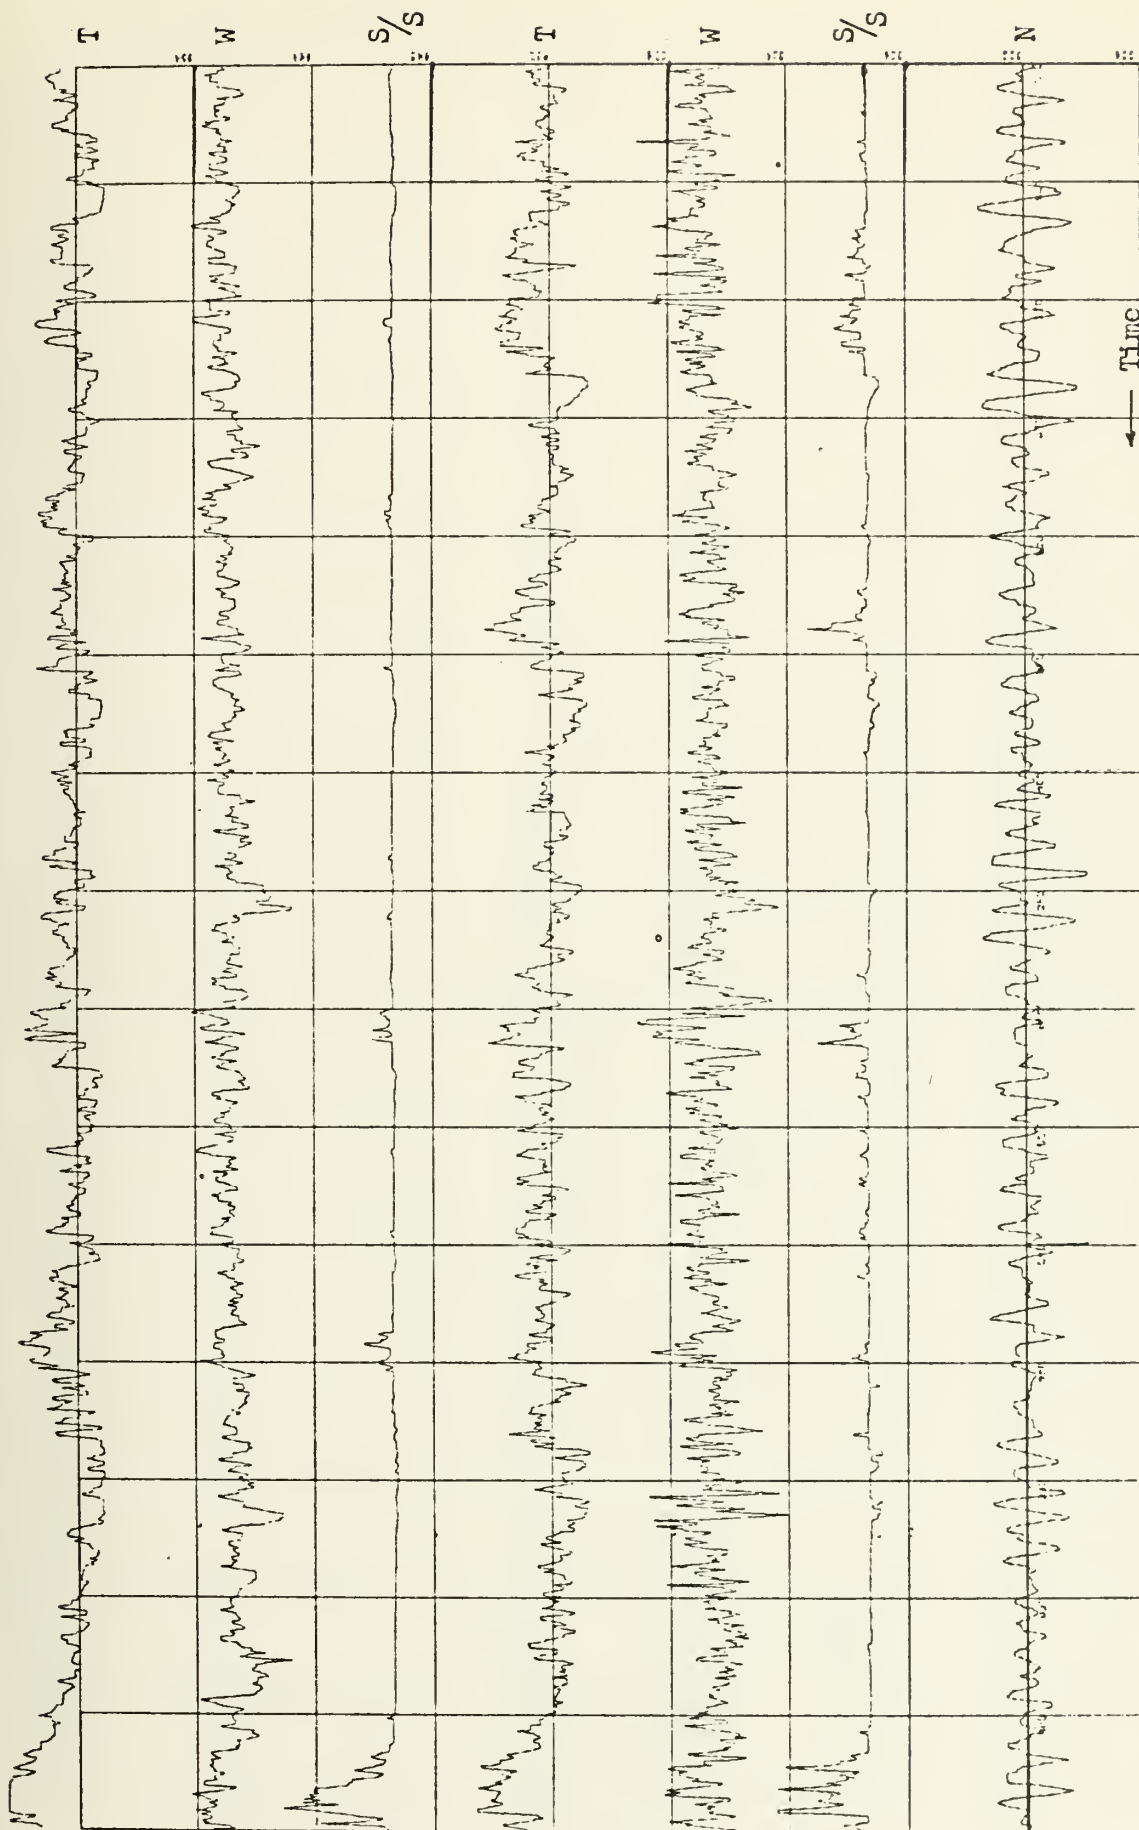 T
W
S/S
T
W
S/S
N
← Time